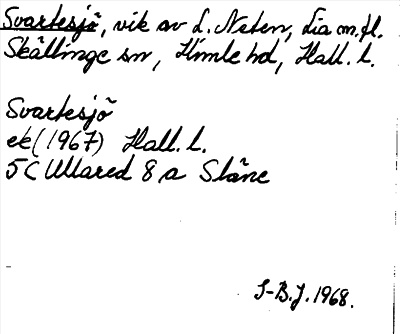 Svartesjö, vik av L. Neten, Lia m.fl.
Skällinge sn, Himle hd, Hall. l.
Svartesjö
ek (1967) Hall. l.
5C Ullared 8 a Släne
S-B.J. 1968.